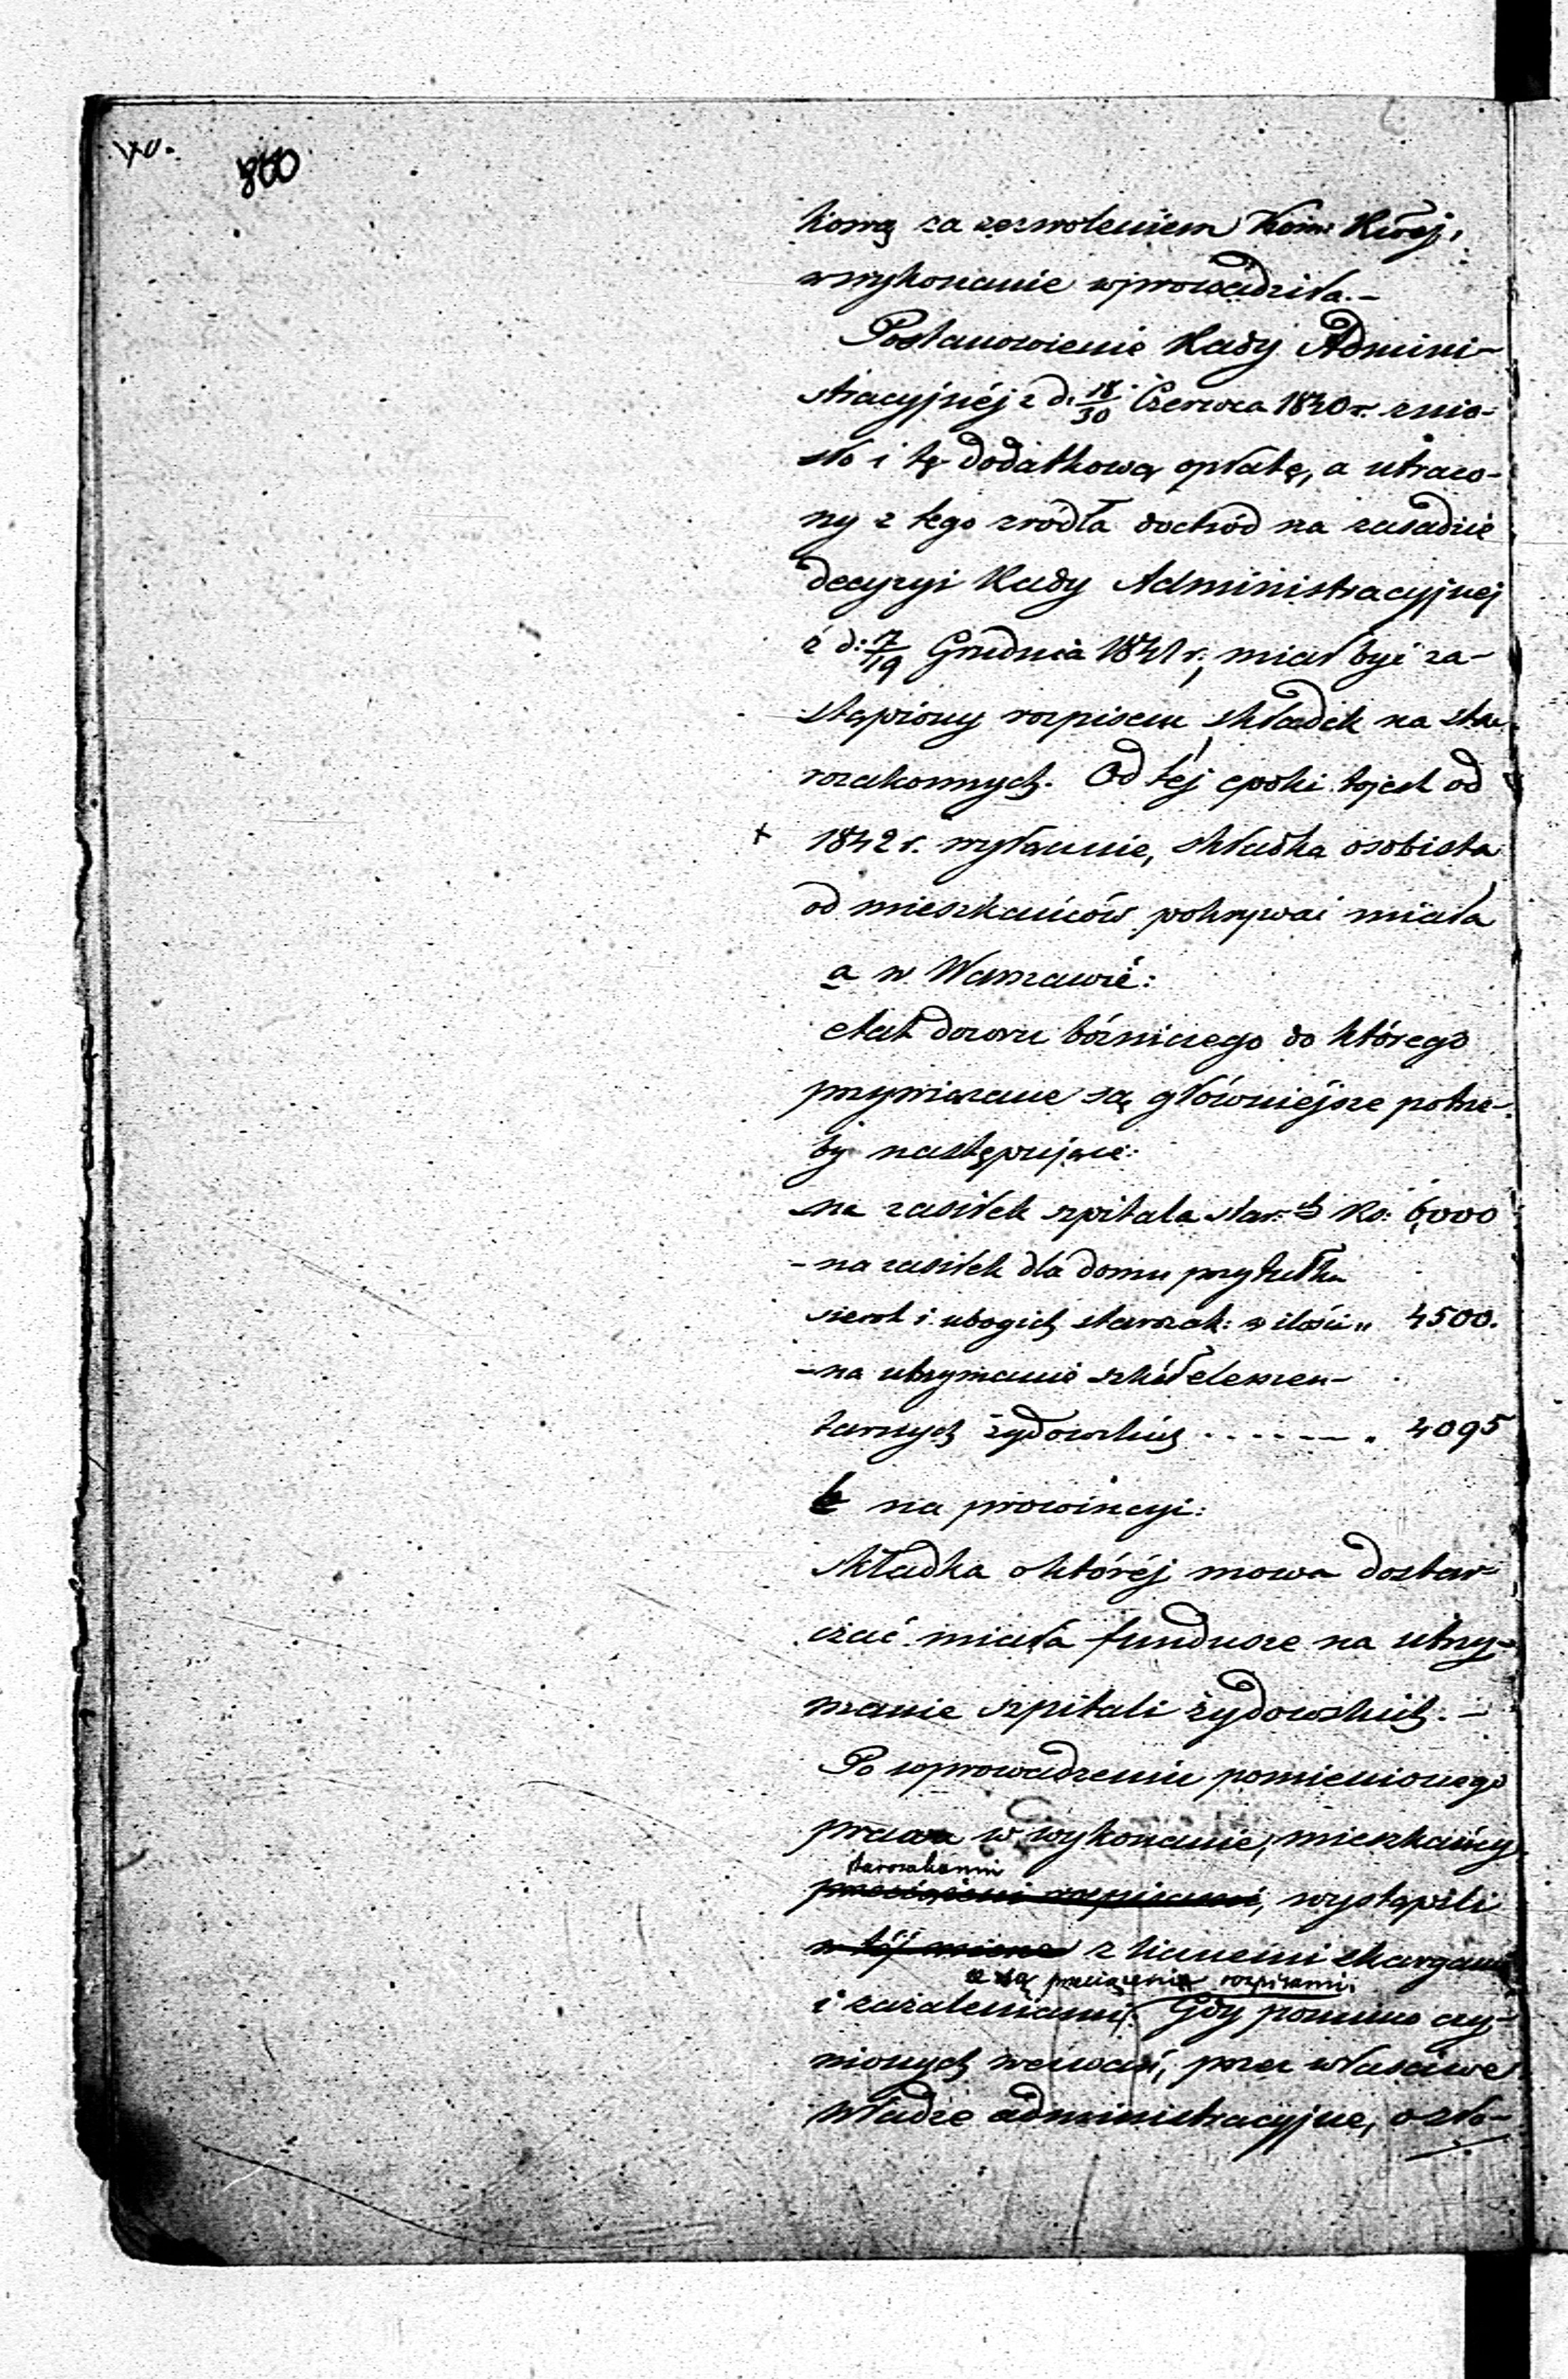 800
kową za zezwoleniem Kom: Rząd:
w wykonanie wprowadziła.–
Postanowienie Rady Admini-
stracyjnéj z d. 18/30 Czerwca 1840 r. znio-
sło i tę dodatkową opłatę, a utraco-
ny z tego zródła dochód na zasadzie
decyzyi Rady Administracyjnej
z d: 7/19 Grudnia 1841 r; miał być za-
stąpiony rozpisem składek na sta-
rozakonnych. Od téj epoki tojest od
1842 r. wyłącznie, składka osobista
od mieszkańców pokrywać miała
a w Warszawie:
etat dozoru bóżniczego do którego
przywiązane są główniejsze potrze-
by następujące:
na zasiłek szpitala star:ch Rs: 6000
– na zasiłek dla domu przytułku
sierot i ubogich starozak: w ilości „ 4500.
– na utrzymanie szkół elemen-
tarnych żydowskich - - - - - - „ 4095
b na prowincyi:
składka o któréj mowa dostar-
czać miała fundusze na utrzy-
manie szpitali żydowskich. –
Po wprowadzeniu pomienionego
prawa w wykonanie, mieszkańcy
starozakonni
przeciążeni rozpisami, wystąpili
w téj mierze z licznemi skargami
że są przeciążeni rozpisami
i zażaleniami. Gdy pomimo czy-
nionych wezwań, przez właściwe
władze administracyjne, o zło-